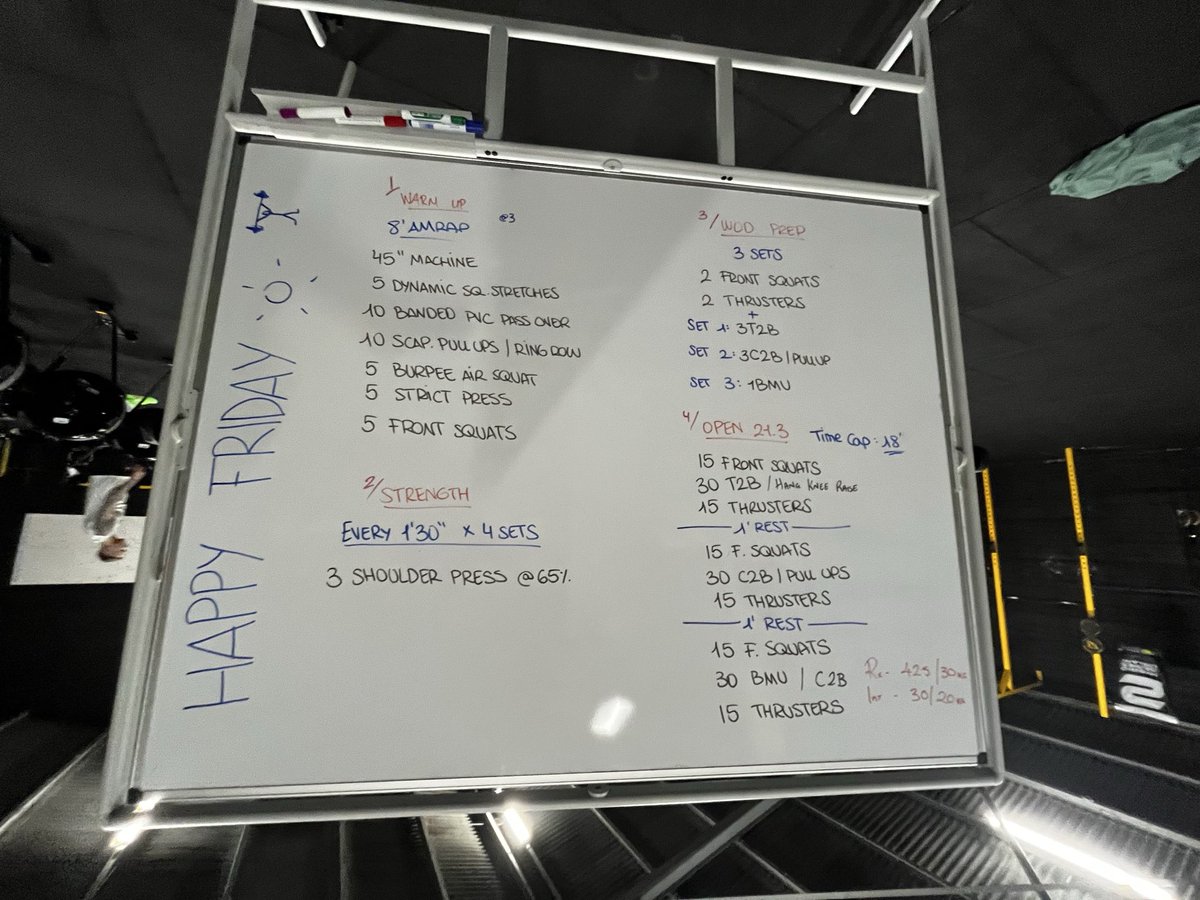 HAPPY FRIDAY
1 WARM UP
8' AMRAP @3
45" MACHINE
5 DYNAMIC SQ. STRETCHES
10 BANDED PVC PASS OVER
10 SCAP. PULL UPS / RING ROW
5 BURPEE AIR SQUAT
5 STRICT PRESS
5 FRONT SQUATS
2/ STRENGTH
EVERY 1'30" x 4 SETS
3 SHOULDER PRESS @65%.
3/ WOD PREP
3 SETS
2 FRONT SQUATS
2 THRUSTERS
+
SET 1: 3T2B
SET 2: 3C2B / PULL UP
SET 3: 1BMU
4/ OPEN 21.3 Time Cap: 18'
15 FRONT SQUATS
30 T2B / HANG KNEE RAISE
15 THRUSTERS
1' REST
15 F. SQUATS
30 C2B / PULL UPS
15 THRUSTERS
1' REST
15 F. SQUATS
30 BMU / C2B
15 THRUSTERS
Rx - 425/30KG
Int - 30/20